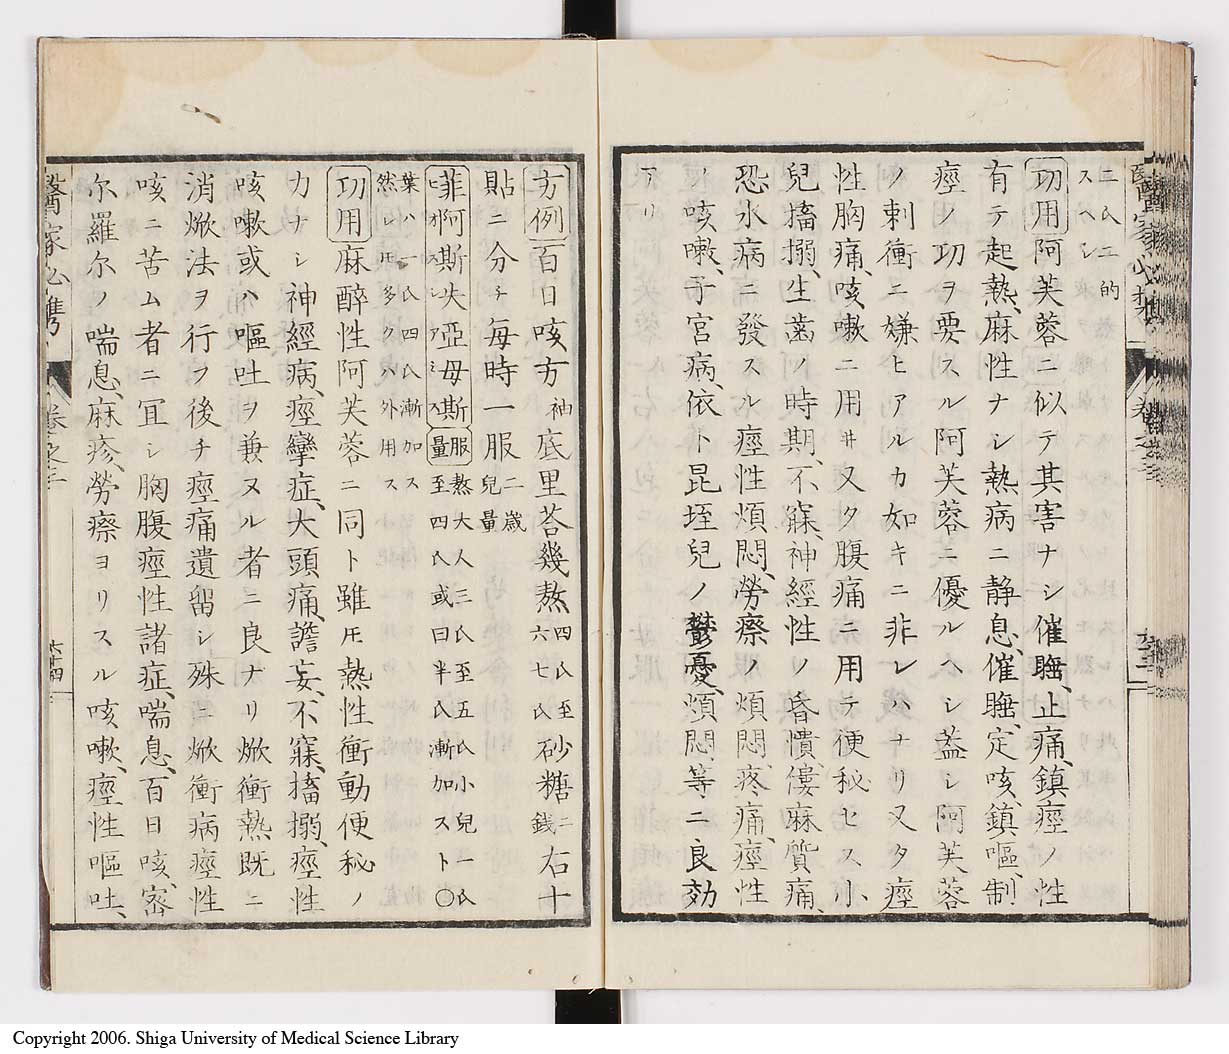 功用阿芙蓉ニ似テ其害ナシ催睡、止痛、鎮痙ノ性
有テ起熱、麻性ナシ熱病ニ静息、催睡、定咳、鎮嘔、制
痙ノ功ヲ要スル阿芙蓉ニ優ルヘシ蓋シ阿芙蓉
ノ刺衝ニ嫌ヒアルカ如キニ非レハナリ又タ痙
性胸痛、咳嗽ニ用ヰ又タ腹痛ニ用テ便秘セス小
兒搐搦、生歯ノ時期、不寐、神經性ノ昏憒、僂麻質痛、
恐水病ニ發スル痙性煩悶、勞瘵ノ煩悶、疼痛、痙性
ノ咳嗽、子宮病、依卜昆垤兒ノ鬱憂、煩悶、等ニ良効
アリ
方例百日咳方 袖底里苔幾熬四氏至六七氏砂糖二錢右十
貼ニ分チ毎時一服二歳兒量
菲阿斯失亞母斯服量熬大人三氏至五氏小兒一氏
至四氏或曰半氏漸加スト〇
葉ハ一氏四氏漸加ス
然レ𪜈多クハ外用ス
功用麻醉性阿芙蓉ニ同ト雖𪜈熱性衝動便秘ノ
力ナシ神經病、痙攣症、大頭痛、譫妄、不寐、搐搦、痙性
咳嗽或ハ嘔吐ヲ兼ヌル者ニ良ナリ焮衝熱既ニ
消焮法ヲ行フ後チ痙痛遺留シ殊ニ焮衝病痙性
咳ニ苦ム者ニ冝シ胸腹痙性諸症、喘息、百日咳、密
尔羅尔ノ喘息、麻疹、勞瘵ヨリスル咳嗽、痙性嘔吐、
醫家必携 卷之三 六十四